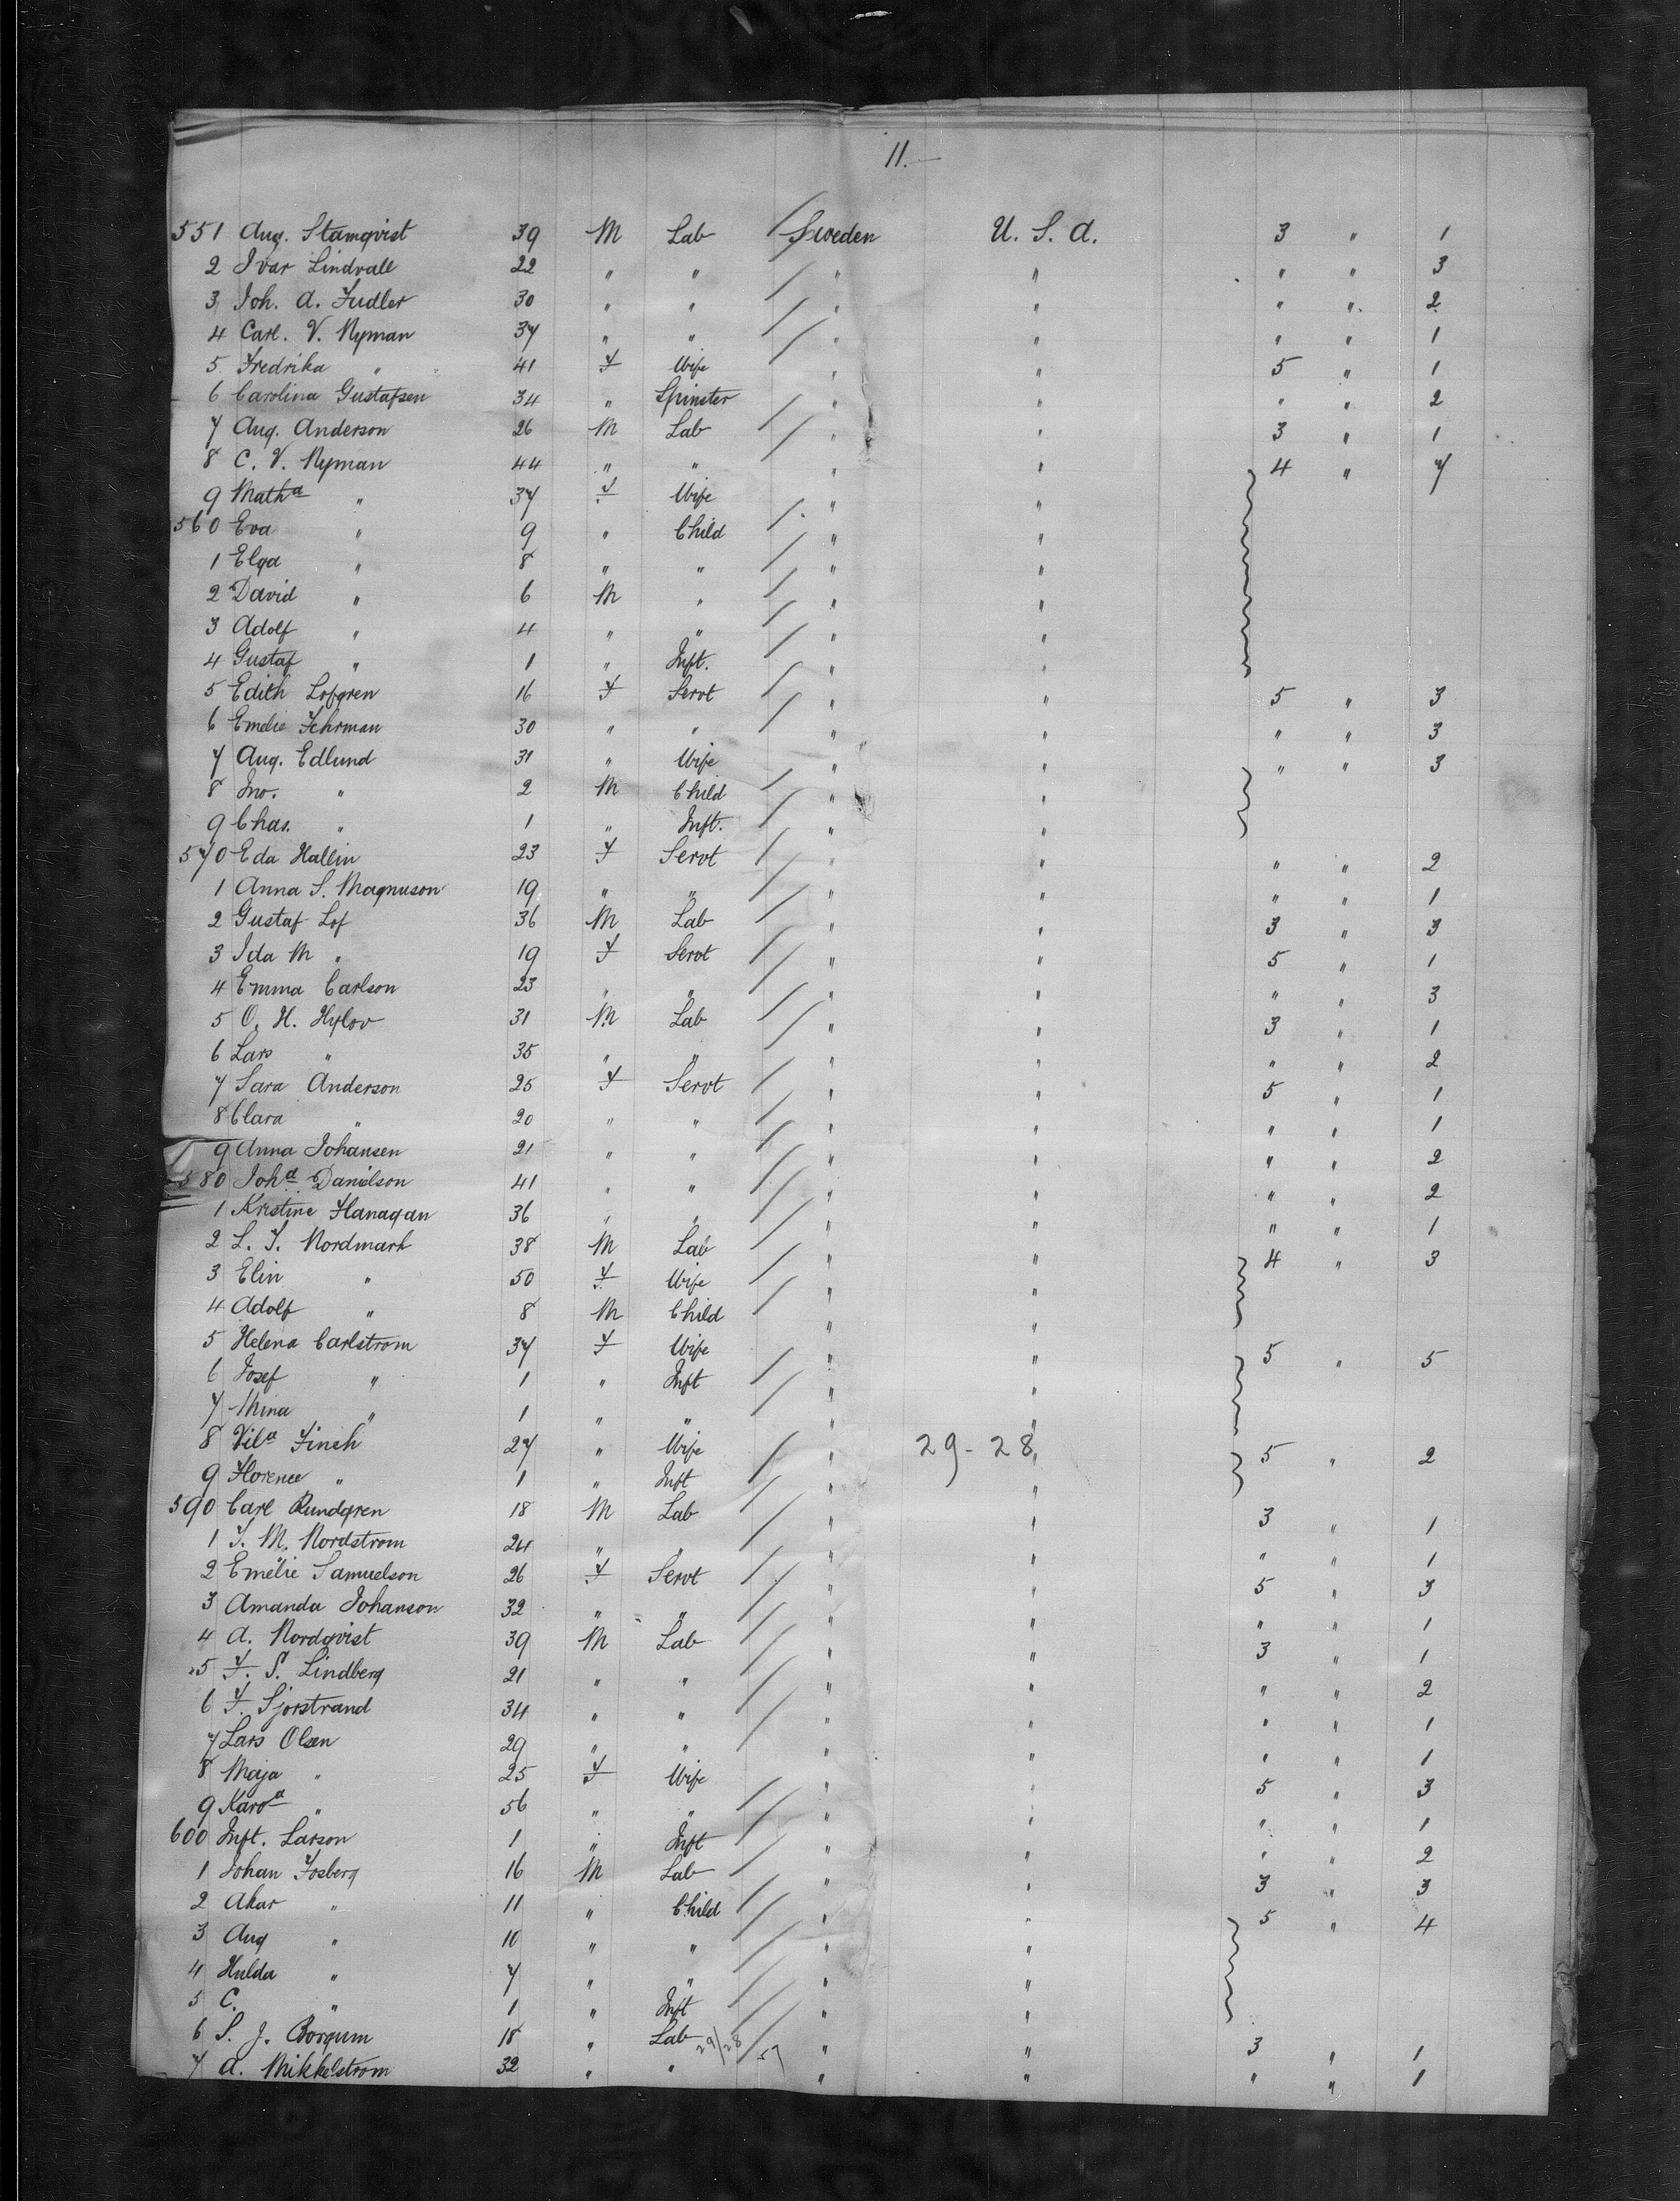 11.
551 Aug. Stamqvist 39 M Lab Sweden U. S. A. 3 " 1
2 Ivar Lindvall 22 " " " " " " 3
3 Joh. A. Fudler 30 " " " " " " 2
4 Carl. V. Nyman 37 " " " " " " 1
5 Fredrika " 41 F Wife " " 5 " 1
6 Carolina Gustafsen 34 " Spinster " " " " 2
7 Aug. Anderson 26 M Lab " " 3 " 1
8 C. V. Nyman 44 " " " " 4 " 7
9 Matha " 37 F Wife " "
560 Eva " 9 " Child " "
1 Elga " 8 " " " "
2 David " 6 M " " "
3 Adolf " 4 " " " "
4 Gustaf " 1 " Inft. " "
5 Edith Lofgren 16 F Servt " " 5 " 3
6 Emelie Fehrman 30 " " " " " " 3
7 Aug. Edlund 31 " Wife " " " " 3
8 Jno. " 2 M Child " "
9 Chas. " 1 " Inft. " "
570 Eda Hallin 23 F Servt " " " " 2
1 Anna S. Magnuson 19 " " " " " " 1
2 Gustaf Lof 36 M Lab " " 3 " 3
3 Ida M " 19 F Servt " " 5 " 1
4 Emma Carlson 23 " " " " " " 3
5 O. H. Hylov 31 M Lab " " 3 " 1
6 Lars " 35 " " " " " " 2
7 Sara Anderson 25 F Servt " " 5 " 1
8 Clara " 20 " " " " " " 1
9 Anna Johansen 21 " " " " " " 2
580 Joha Danielson 41 " " " " " " 2
1 Kristine Flanagan 36 " " " " " " 1
2 L. F. Nordmark 38 M Lab " " 4 " 3
3 Elin " 50 F Wife " "
4 Adolf " 8 M Child " "
5 Helena Carlstrom 37 F Wife " " 5 " 5
6 Josef " 1 " Inft " "
7 Mina " 1 " " " "
8 Vila Finch 27 " Wife " 29-28 " 5 " 2
9 Florence " 1 " Inft " "
590 Carl Rundgren 18 M Lab " " 3 " 1
1 F. M. Nordstrom 24 " " " " " " 1
2 Emelie Samuelson 26 F Servt " " 5 " 3
3 Amanda Johanson 32 " " " " " " 1
4 A. Nordqvist 39 M Lab " " 3 " 1
5 F. S. Lindberg 21 " " " " " " 2
6 F. Sjorstrand 34 " " " " " " 1
7 Lars Olsen 29 " " " " " " 1
8 Maja " 25 F Wife " " 5 " 3
9 Karoa " 56 " " " " " " 1
600 Inft. Larson 1 " Inft " " " " 2
1 Johan Fosberg 16 M Lab " " 3 " 3
2 Akar " 11 " Child " " 5 " 4
3 Aug " 10 " " " "
4 Hulda " 7 " " " "
5 C. " 1 " Inft " "
6 S. J. Borgum 18 " Lab 29/28 57 " " 3 " 1
7 A. Mikkelstrom 32 " " " " " " 1